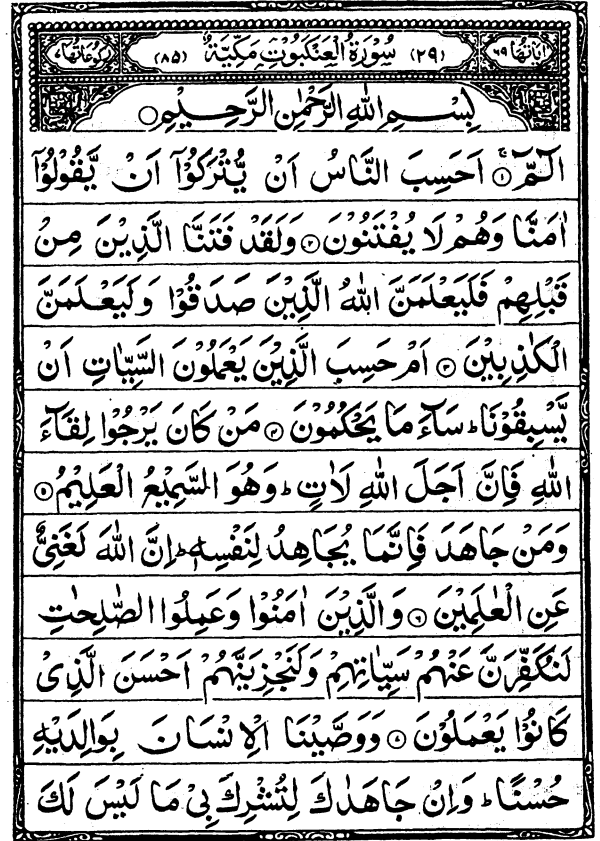 اٰیَاتُهَا ٦٩ (٢٩) سُوْرَةُ الْعَنْكَبُوْتِ مَكِّيَّةٌ (٨٥) رُكُوْعَاتُهَا ٧
بِسْمِ اللهِ الرَّحْمٰنِ الرَّحِيْمِ
الٓمّٓ ۚ﴿١﴾ اَحَسِبَ النَّاسُ اَنْ يُّتْرَكُوْۤا اَنْ يَّقُوْلُوْۤا
اٰمَنَّا وَهُمْ لَا يُفْتَنُوْنَ ﴿٢﴾ وَلَقَدْ فَتَنَّا الَّذِيْنَ مِنْ
قَبْلِهِمْ فَلَيَعْلَمَنَّ اللهُ الَّذِيْنَ صَدَقُوْا وَلَيَعْلَمَنَّ
الْكٰذِبِيْنَ ﴿٣﴾ اَمْ حَسِبَ الَّذِيْنَ يَعْمَلُوْنَ السَّيِّاٰتِ اَنْ
يَّسْبِقُوْنَا ؕ سَآءَ مَا يَحْكُمُوْنَ ﴿٤﴾ مَنْ كَانَ يَرْجُوْا لِقَآءَ
اللهِ فَاِنَّ اَجَلَ اللهِ لَاٰتٍ ؕ وَهُوَ السَّمِيْعُ الْعَلِيْمُ ﴿٥﴾
وَمَنْ جَاهَدَ فَاِنَّمَا يُجَاهِدُ لِنَفْسِهٖ ؕ اِنَّ اللهَ لَغَنِيٌّ
عَنِ الْعٰلَمِيْنَ ﴿٦﴾ وَالَّذِيْنَ اٰمَنُوْا وَعَمِلُوا الصّٰلِحٰتِ
لَنُكَفِّرَنَّ عَنْهُمْ سَيِّاٰتِهِمْ وَلَنَجْزِيَنَّهُمْ اَحْسَنَ الَّذِىْ
كَانُوْا يَعْمَلُوْنَ ﴿٧﴾ وَوَصَّيْنَا الْاِنْسَانَ بِوَالِدَيْهِ
حُسْنًا ؕ وَاِنْ جَاهَدٰكَ لِتُشْرِكَ بِىْ مَا لَيْسَ لَكَ